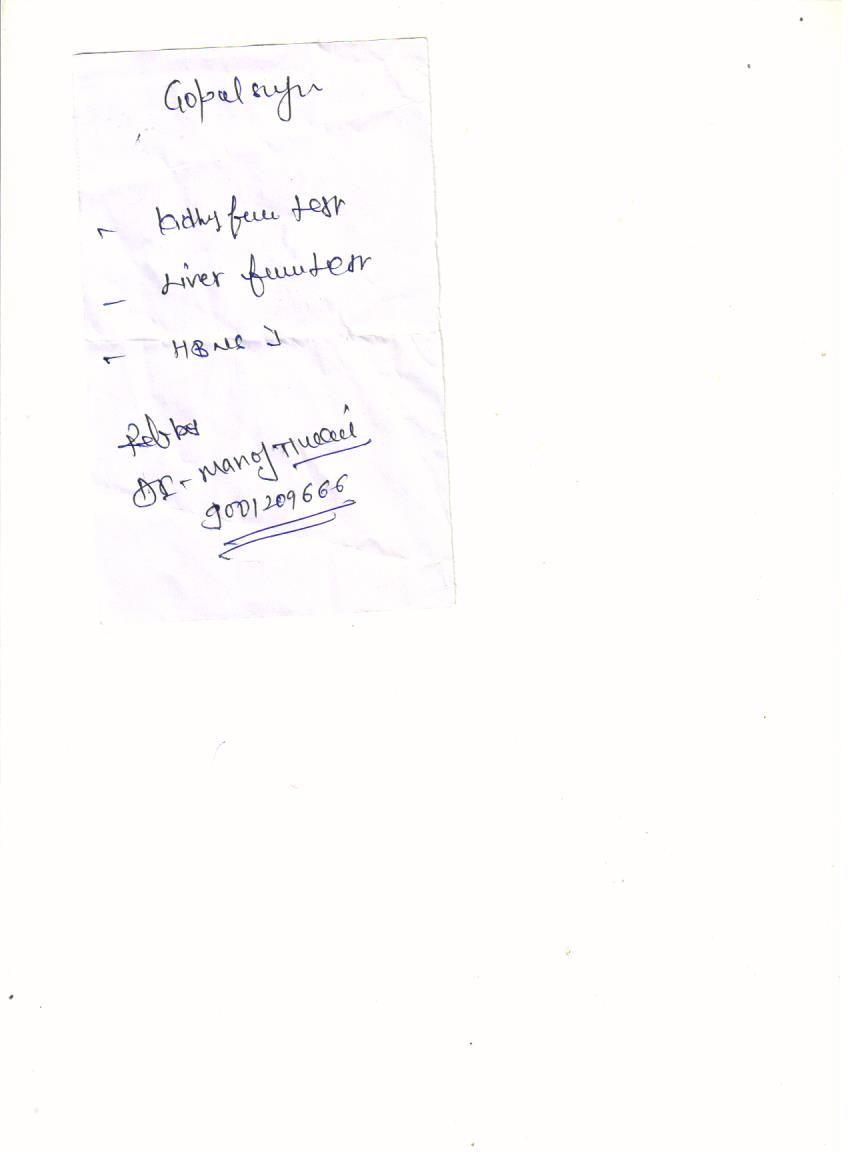 Gopal
Kidny func test
Liver func test
HB
Ref by
Dr - Manoj Tiwari
9001209666